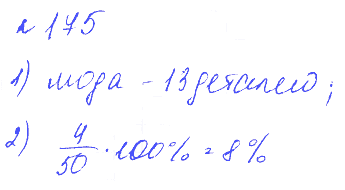 № 175
1) мода - 13 деталей;
2) 4/50 · 100% = 8%